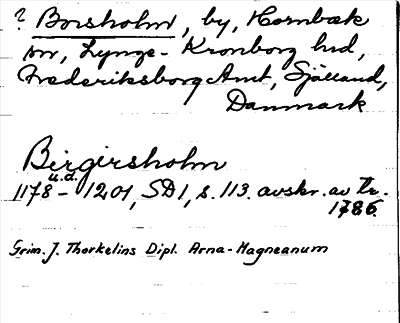 ? Borsholm, by, Hornbæk
sn, Lynge-Kronborg hrd,
Frederiksborg Amt, Själland,
Danmark
Birgirsholm
u.d.
1178 - 1201, SD1, s. 113. avskr. av tr.
1786.
Grim. J. Thorkelins Dipl. Arna-Magneanum